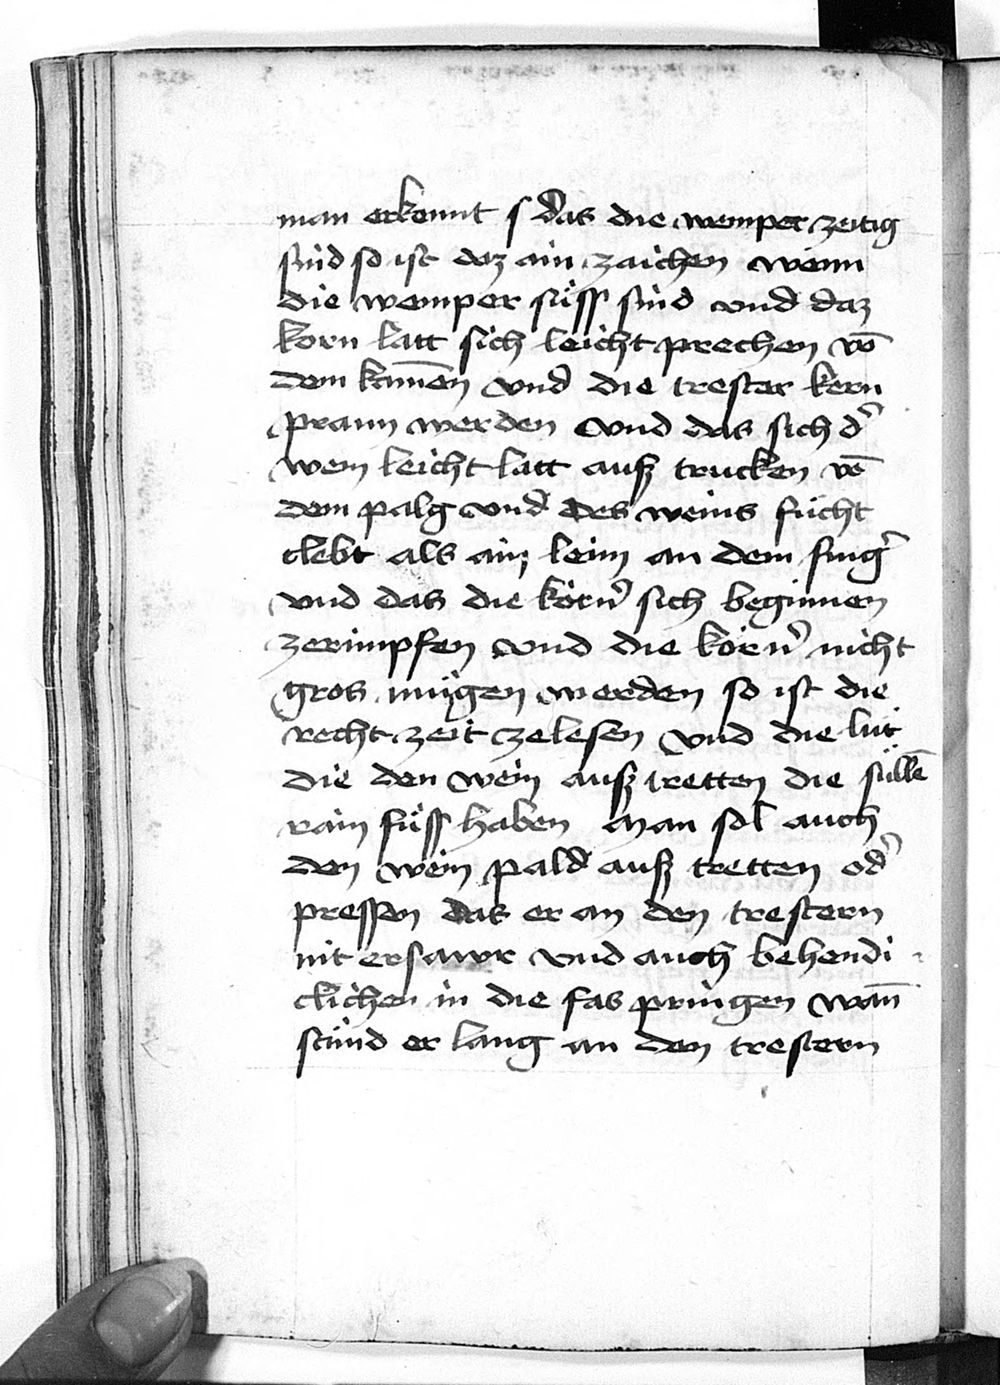 man erkennt s das die wemper zeitig
sind so ist daz ain zaichen wenn
die wemper süss sind vnd daz
korn latt sich leicht prechen vō
dem kam̄en vnd die trester kern
prann werden vnd das sich d̾
wein leicht latt ausz trucken vō
dem palg vnd des weins fücht
clebt als ain leim an dem fing̾
vnd das die körn̾ sich beginnen
zerimpfen vnd die körn̾ nicht
gros mügen werden so ist die
recht zeit zelesen vnd die lüt
die den wein ausz tretten die süllē
rain füss haben man sol auch
den wein pald ausz tretten od̾
pressen das er an den trestern
nit ersawr vnd auch behendi
clichen in die fas pringen wan̄
stünd er lang an den trestern